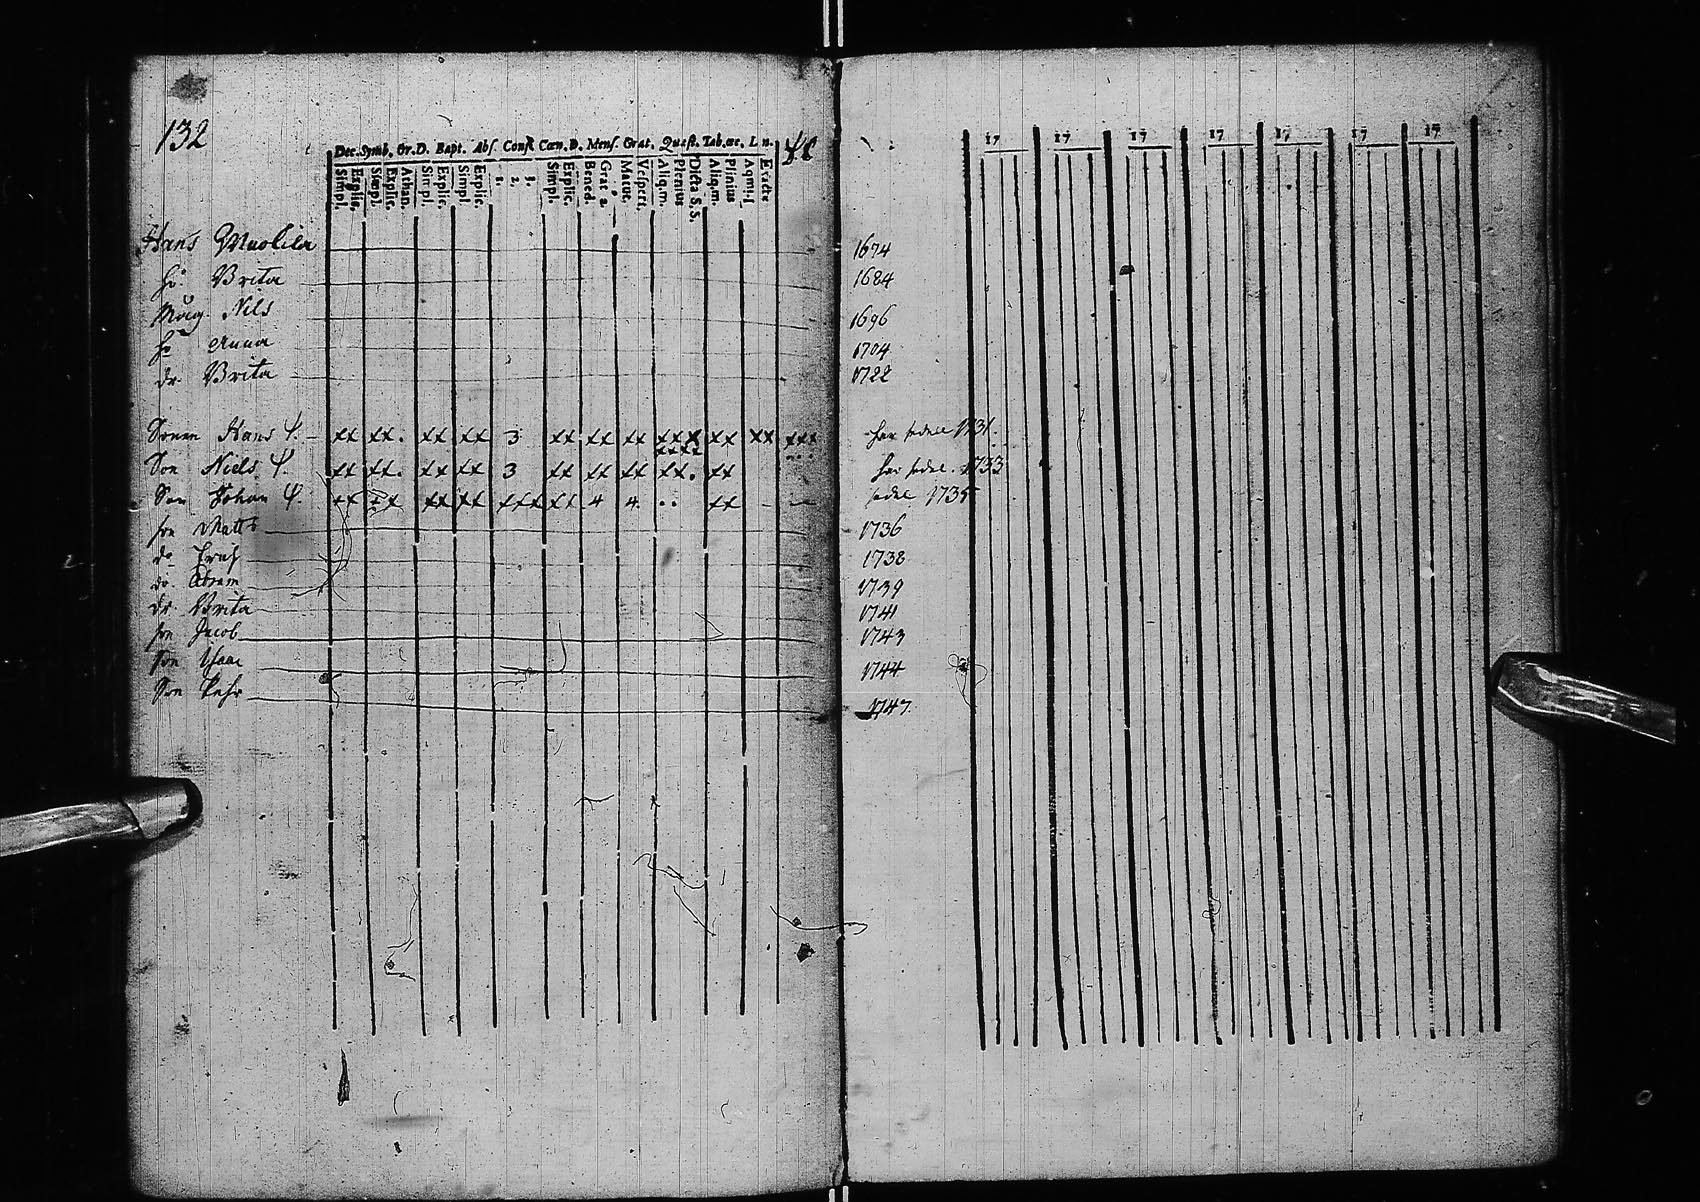 132
Dec. Symb. Or. D. Bapt. Abs. Conf. Cœn. D. Mens. Grat. Quæst. Tab. œc. L. n.
Simpl. Explic. Simpl. Explic. Athan. Simpl. Explic. Simpl. Explic. 1. 2. 3. Simpl. Explic. Bened. Grat. a. Matut. Vespert. Aliq. m. Plenius Dicta S. S. Aliq. m. Plenius Exacte
17 17 17 17 17 17 17
Hans 1674
Brita 1684
Måg Nils 1696
Anna 1704
dr Brita 1722
Sonen Hans xx xx. xx xx 3 xx xx xx xxx xx xx xxx har sedel 1731.
Son Niels xx xx. xx xx 3 xx xx xx xx. xx har sedel. 1733
Son Johan xx xx xx xx xxx xx 4 4 .. xx sedel 1735
son Matts 1736
do 1738
do. Abram 1739
dr Brita 1741
son Jacob 1743
son Isaac 1744
Son Pehr 1747